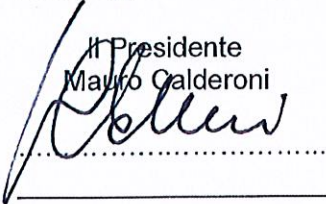 Il Presidente
Mauro Calderoni